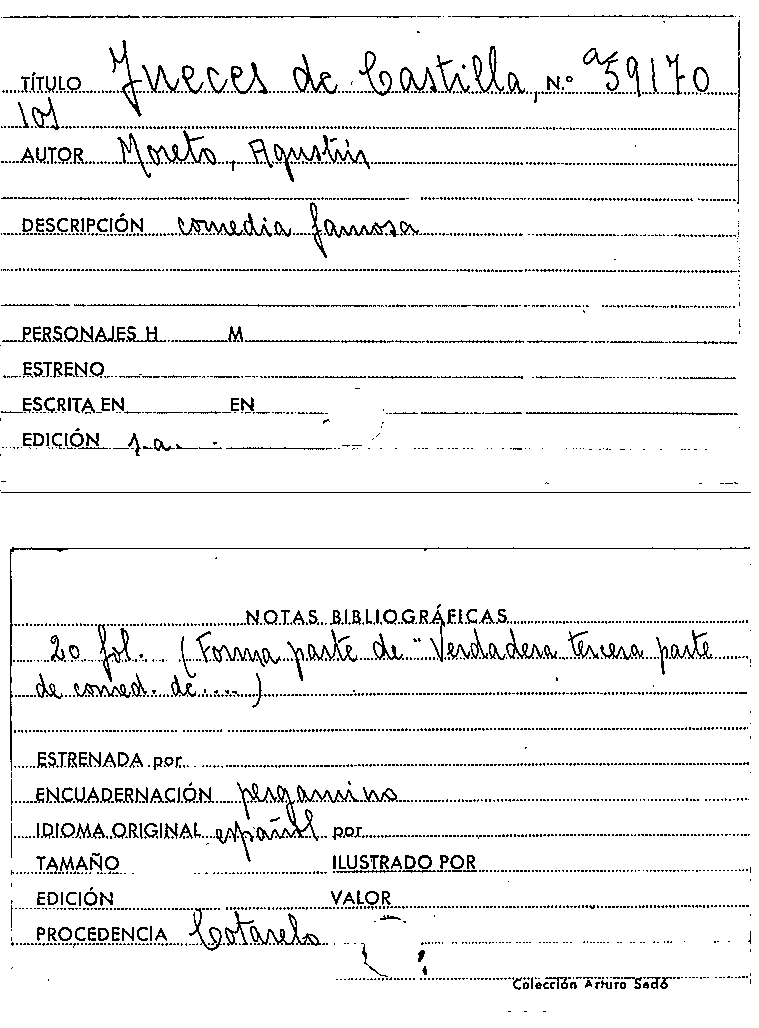 TÍTULO Jueces de Castilla, N.º a 59170
los
AUTOR Moreto, Agustín
DESCRIPCIÓN comedia famosa
PERSONAJES H M
ESTRENO
ESCRITA EN EN
EDICIÓN s.a.
NOTAS BIBLIOGRÁFICAS
20 fol. (Forma parte de "Verdadera tercera parte
de comed. de....)
ESTRENADA por
ENCUADERNACIÓN pergamino
IDIOMA ORIGINAL español por
TAMAÑO ILUSTRADO POR
EDICIÓN VALOR
PROCEDENCIA Cotarelo
Colección Arturo Sedó